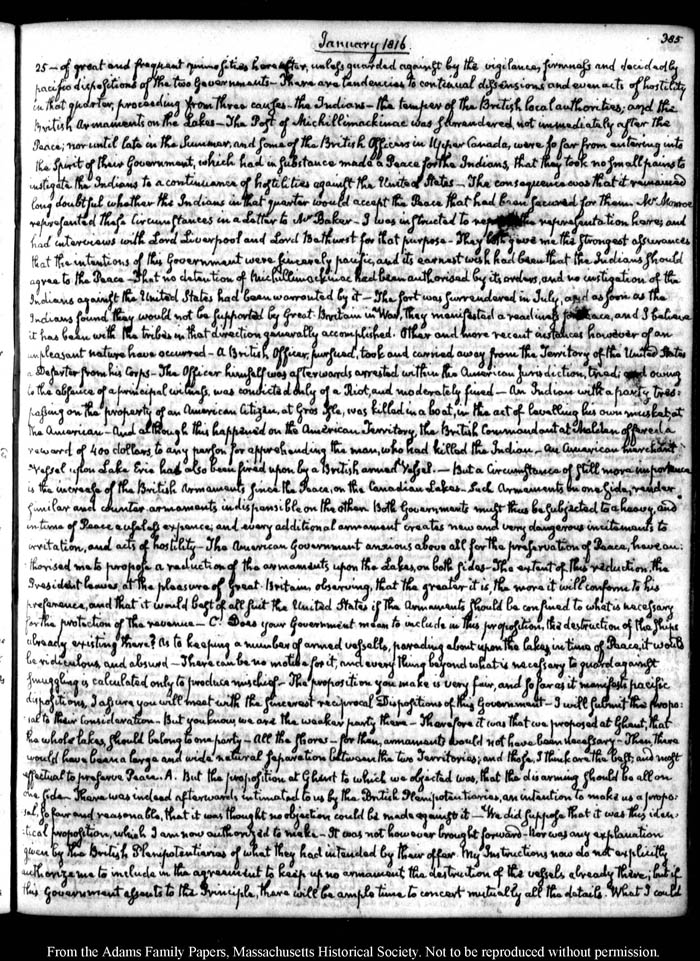 January 1816.
385
25 — of great and frequent animosities hereafter, unless guarded against by the vigilance, firmness and decidedly
pacific dispositions of the two Governments — There are tendencies to continual dissensions and even acts of hostility
in that quarter, proceeding from three causes — the Indians — the temper of the British local authorities; and the
British Armaments on the Lakes — The Post of Michillimackinac was surrendered, not immediately after the
Peace; nor until late in the Summer, and some of the British Officers in Upper Canada, were so far from entering into
the Spirit of their Government, which had in substance made a Peace for the Indians, that they took no small pains to
instigate the Indians to a continuance of hostilities against the United States — The consequence was that it remained
long doubtful whether the Indians in that quarter would accept the Peace that had been secured for them. Mr Monroe
represented these Circumstances in a letter to Mr Baker — I was instructed to the representation here, and
had interviews with Lord Liverpool and Lord Bathurst for that purpose — They both gave me the strongest assurances
that the intentions of this Government were sincerely pacific, and its earnest wish had been that the Indians should
agree to the Peace — That no detention of Michillimackinac had been authorised by its orders, and no instigation of the
Indians against the United States had been warranted by it — The fort was surrendered in July, and as soon as the
Indians found they would not be supported by Great-Britain in War, they manifested a readiness for Peace, and I believe
it has been with the tribes in that direction generally accomplished. Other and more recent instances however of an
unpleasant nature have occurred — A British Officer, pursued, took and carried away from the Territory of the United States
a Deserter from his Corps — The Officer himself was afterwards arrested within the American jurisdiction, tried, and owing
to the absence of a principal witness, was convicted only of a Riot, and moderately fined — An Indian with a party tres-
passing on the property of an American Citizen, at Gros Isle, was killed in a boat, in the act of levelling his own musket at
the American — And although this happened on the American Territory, the British Commandant at Malden offered a
reward of 400 dollars, to any person for apprehending the man, who had killed the Indian — An American merchant
Vessel upon Lake Erie had also been fired upon by a British armed Vessel. — But a Circumstance of still more importance
is the increase of the British Armaments, since the Peace, on the Canadian Lakes. Such Armaments on one side, render
similar and counter armaments indispensible on the other. Both Governments must thus be subjected to a heavy, and
in time of Peace a useless expence; and every additional armament creates new and very dangerous incitements to
irritation, and acts of hostility — The American Government anxious above all for the preservation of Peace, have au-
thorised me to propose a reduction of the armaments upon the Lakes, on both sides — The extent of this reduction, the
President leaves, at the pleasure of Great-Britain, observing, that the greater it is, the more it will conform to his
preference, and that it would best of all suit the United States if the Armaments should be confined to what is necessary
for the protection of the revenue — C. Does your Government mean to include in this proposition, the destruction of the Ships
already existing there? As to keeping a number of armed vessells, parading about upon the lakes in time of Peace, it would
be ridiculous, and absurd — There can be no motive for it, and every thing beyond what is necessary to guard against
smuggling is calculated only to produce mischief — The proposition you make is very fair, and so far as it manifests pacific
dispositions, I assure you will meet with the sincerest reciprocal Dispositions of this Government — I will submit the propo-
sal to their consideration — But you know, we are the weaker party there — Therefore it was that we proposed at Ghent, that
the whole lakes, should belong to one party — All the shores — for then, armaments would not have been necessary — Then, there
would have been a large and wide natural separation between the two Territories; and those, I think are the best, and most
effectual to preserve Peace. A. But the proposition at Ghent to which we objected was, that the disarming should be all on
one side. There was indeed afterwards intimated to us by the British Plenipotentiaries, an intention to make us a propo-
sal, so fair and reasonable, that it was thought no objection could be made against it — We did suppose that it was this iden-
tical proposition, which I am now authorized to make — It was not however brought forward — Nor was any explanation
given by the British Plenipotentiaries of what they had intended by their offer. My Instructions now do not explicitly
authorize me to include in the agreement to keep up no armament the destruction of the vessels already there; but if
this Government assents to the Principle, there will be ample time to concert mutually all the details. What I could
From the Adams Family Papers, Massachusetts Historical Society. Not to be reproduced without permission.